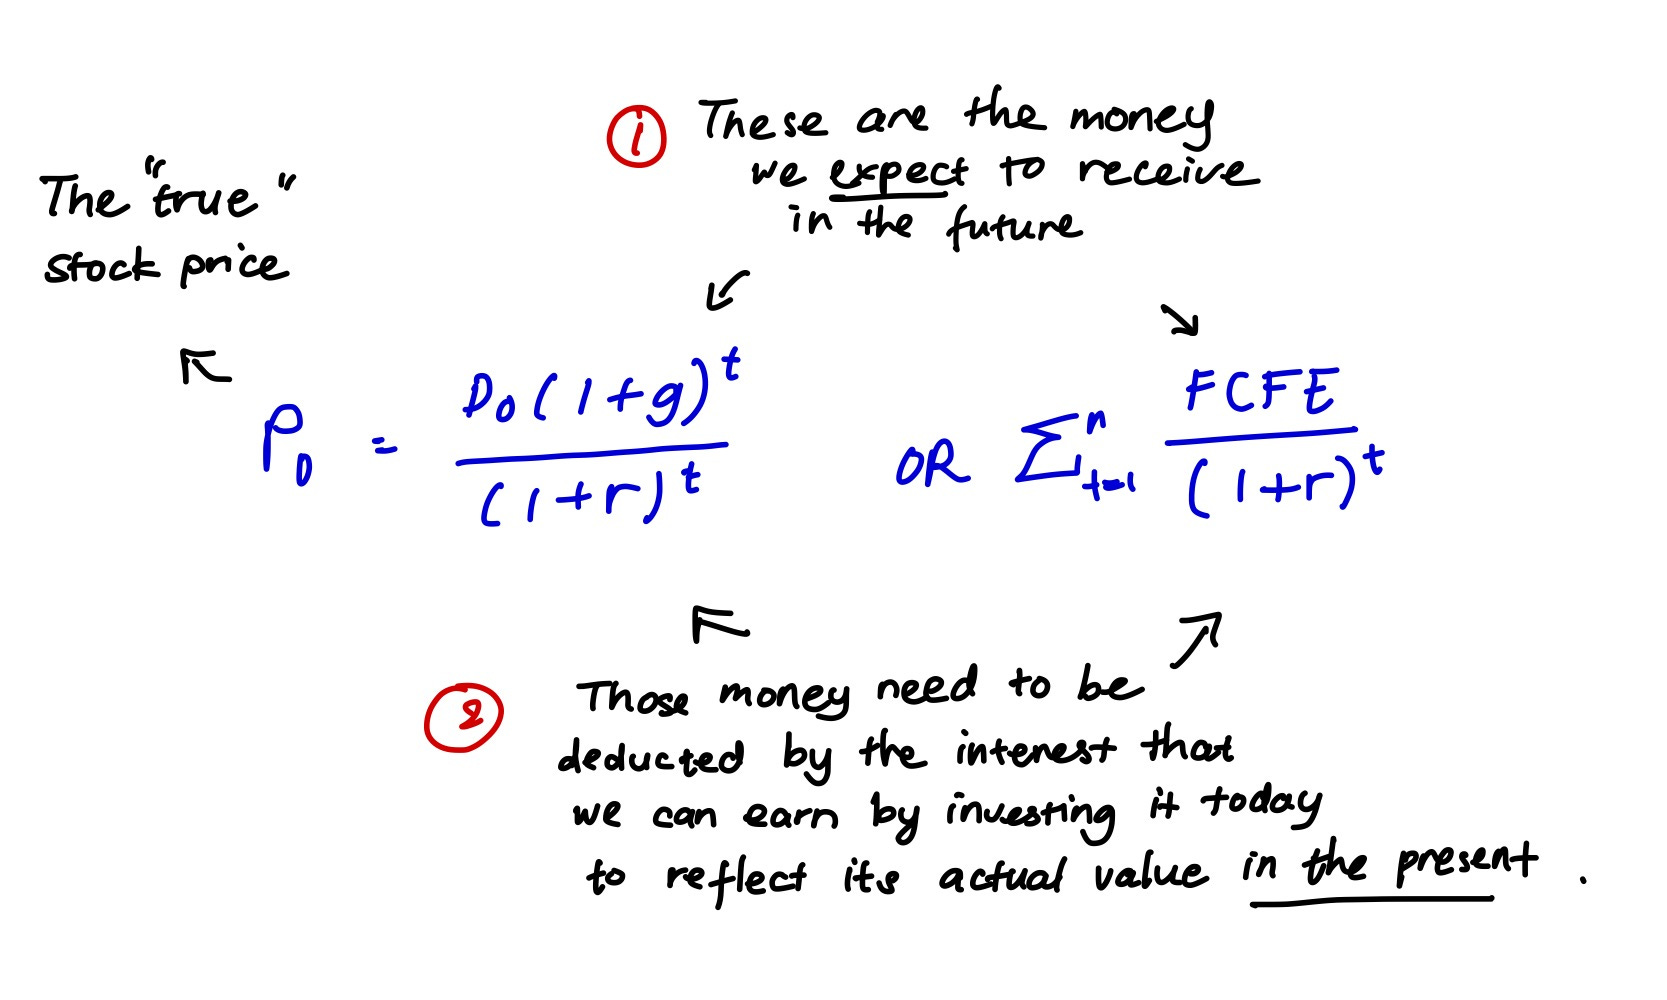 ① These are the money
we expect to receive
in the future
The "true"
stock price
P₀ = D₀(1+g)^t / (1+r)^t OR Σ^n_t=1 FCFE / (1+r)^t
② Those money need to be
deducted by the interest that
we can earn by investing it today
to reflect its actual value in the present.